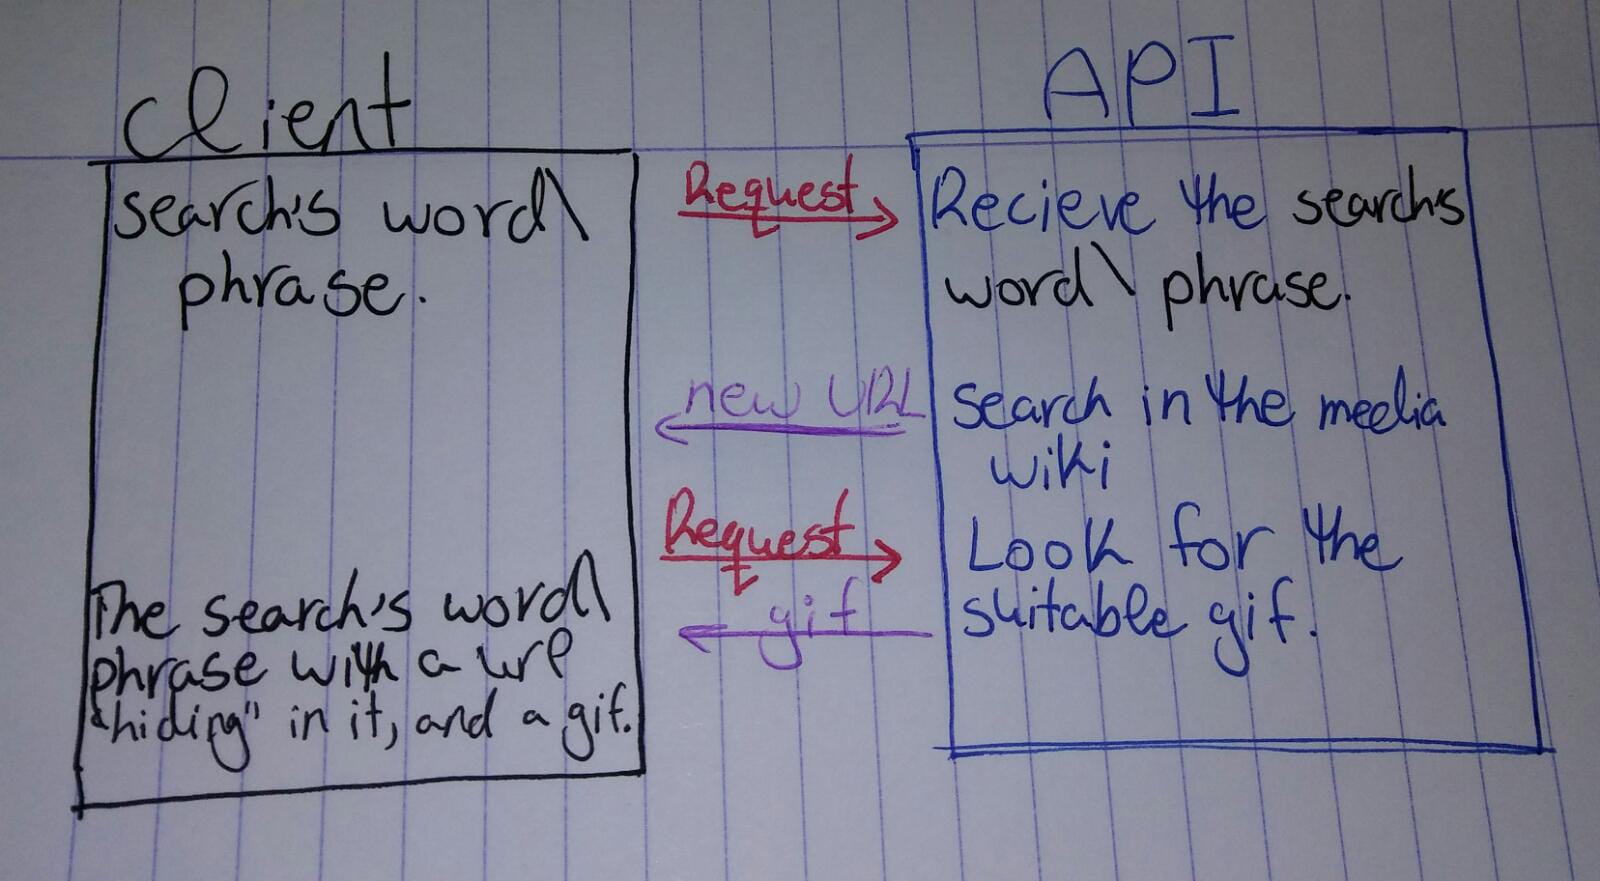 Client
search's word\
phrase.
The search's word\
phrase with a url
"hiding" in it, and a gif.
Request
new URL
Request
gif
API
Recieve the search's
word\ phrase.
search in the media
wiki
Look for the
suitable gif.